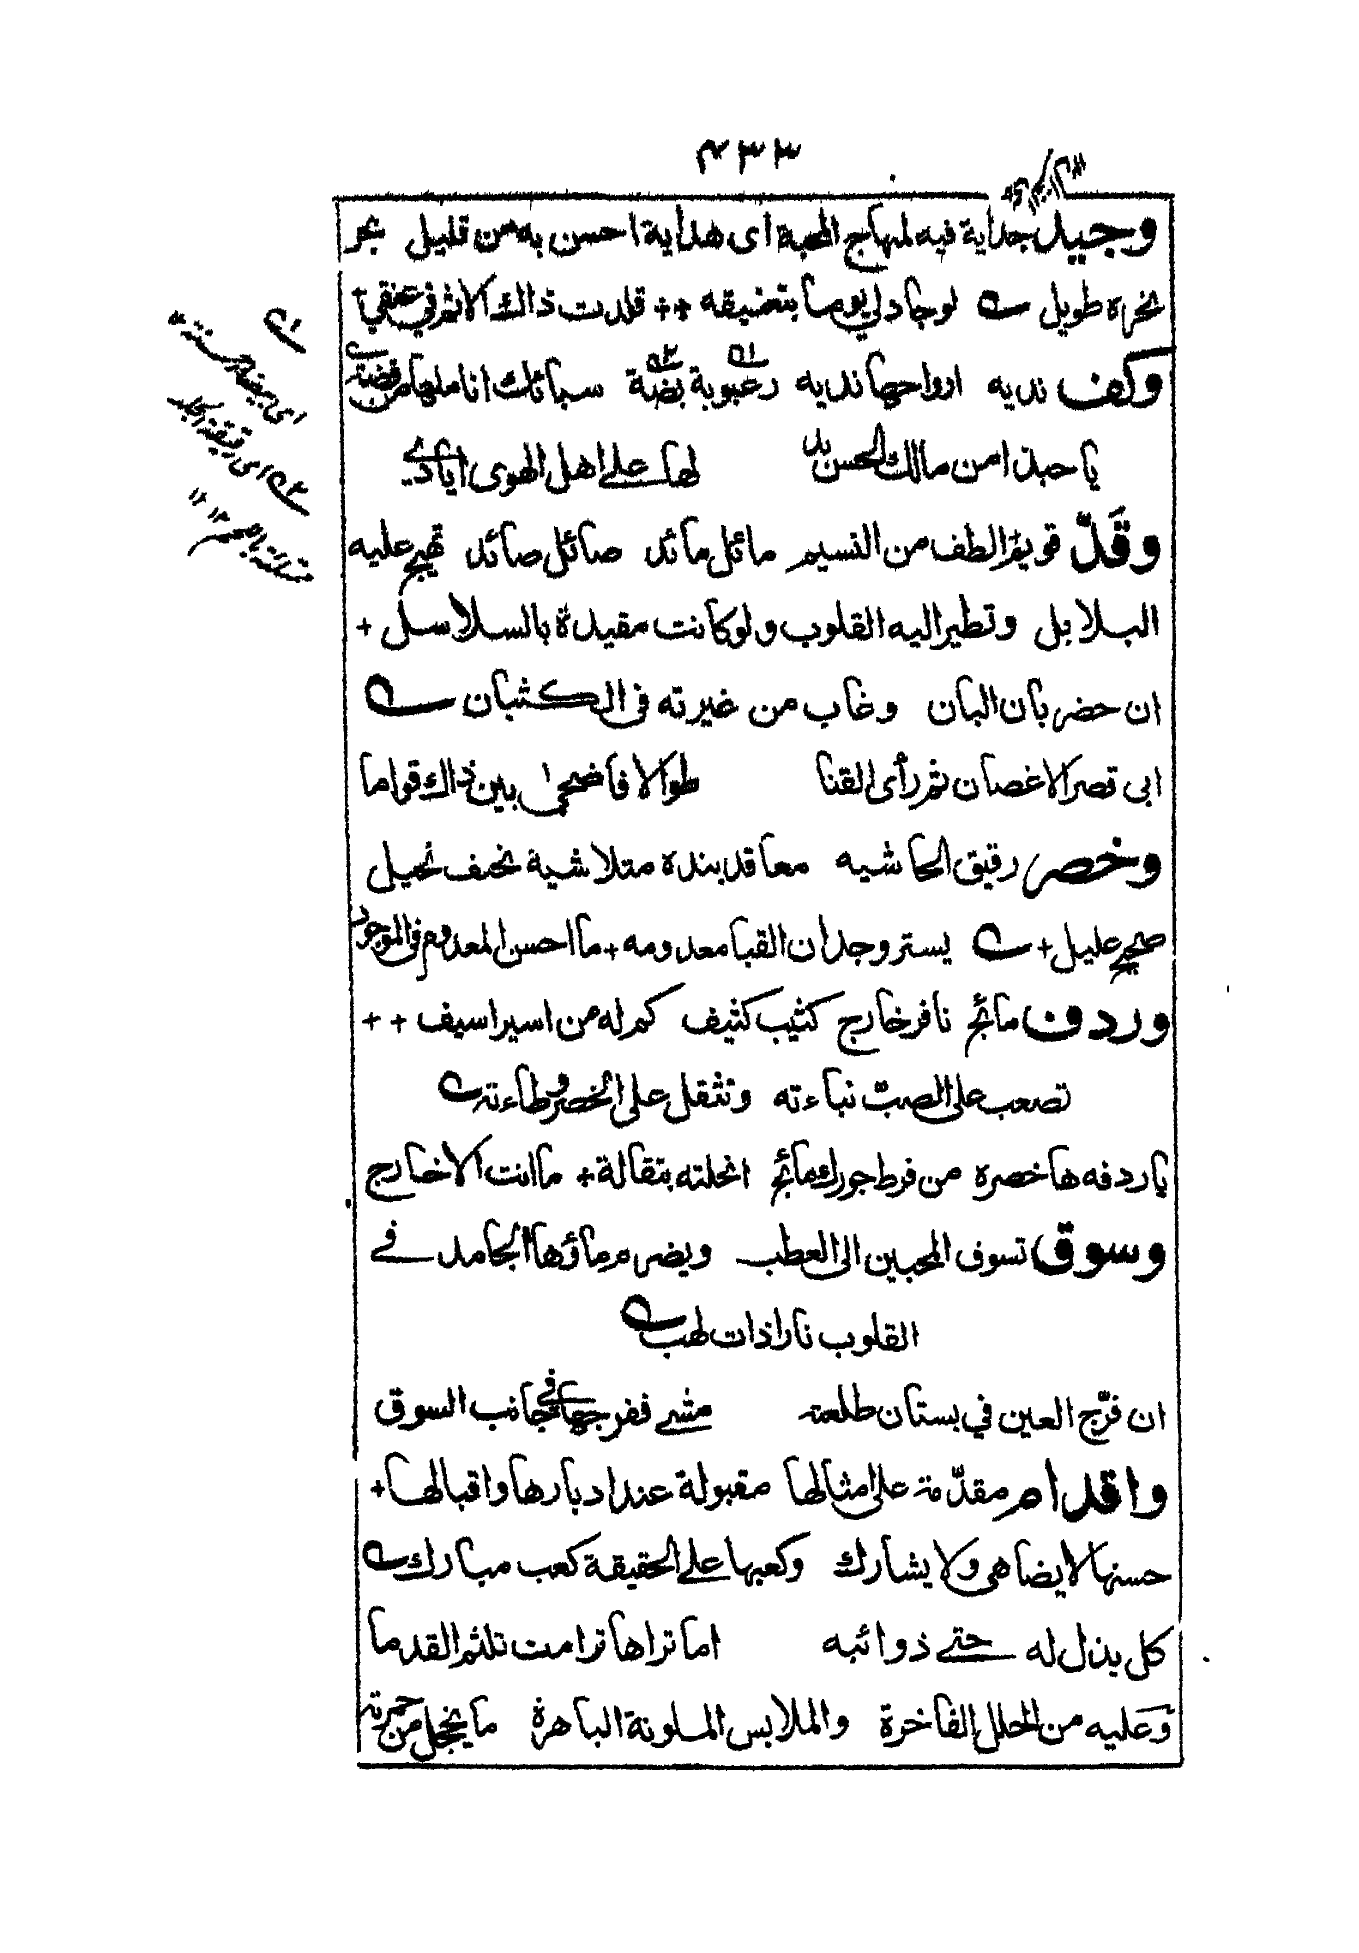 ٤٣٣
وجيد جداية فيه لمنهاج المحبة اى هداية احسن به من قليل بحر
بخرة طويل لو جاد لي يوما بتعنيقه ++ قلدت ذاك الاثم في عنقي +
وكف نديه ارواحها نديه رعبوبة بضة سبائك اناملها من فضة
يا حبذا من مالك الحسن يد لها على اهل الهوى ايادي
وقدّ قويم الطف من النسيم مائل مائد صائل صائد تهيج عليه
البلابل وتطير اليه القلوب ولو كانت مقيدة بالسلاسل +
ان حضر بان البان وغاب من غيرته في الكثبان
ابى قصر الاغصان ثم رأى القنا طوالا فاضحى بين ذاك قواما
وخصر رقيق الحاشيه معاقد بنده متلاشية نحيف نحيل
صحيح عليل + يستر وجدان القبا معدومه + ما احسن المعدوم في الموجود
وردف مائج نافر خارج كثيب كثيف كم له من اسير اسيف + +
تصعب على الصبّ نباءته وتثقل على الخصر وطاءته
يا ردفه ها خصره من فرط جورك مائج انحلته بتقالة + ما انت الا خارج
وسوق تسوف المحبين الى العطب ويضرم ماؤها الجامد في
القلوب نارا ذات لهب
ان فرّج العين في بستان طلعته مشى ففرجها في جانب السوق
واقدام مقدّمة على امثالها مقبولة عند ادبارها واقبالها +
حسنها لا يضاهى ولا يشارك وكعبها على الحقيقة كعب مبارك
كل بذل له حتى ذوائبه اما تراها ترامت تلثم القدما
وعليه من الحلل الفاخرة والملابس الملونة الباهرة ما يخجل من حمرته
اى بيضاء حسنة
اى رقيقة الجلد
١٢ ١٢